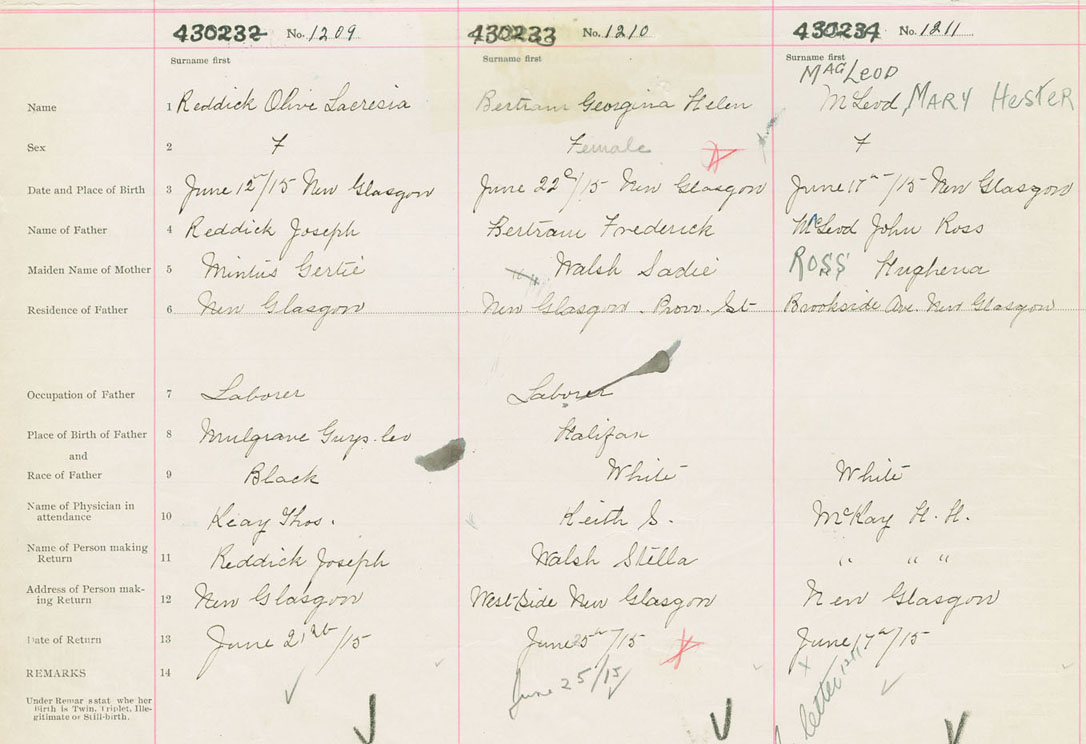 430232 No. 1209 430233 No. 1210 430234 No. 1211
Surname first Surname first Surname first
MacLeod
Name 1 Reddick Olive Lacresia Bertram Georgina Helen McLeod, MARY HesTER
Sex 2 F Female F
Date and Place of Birth 3 June 12th/15 New Glasgow June 22nd/15 New Glasgow June 11th/15 New Glasgow
Name of Father 4 Reddick Joseph Bertram Frederick McLeod John Ross
Maiden Name of Mother 5 Mintus Gertie Walsh Sadie ROSS Hughena
Residence of Father 6 New Glasgow New Glasgow. Prov. St Brookside Ave. New Glasgow
Occupation of Father 7 Laborer Laborer
Place of Birth of Father 8 Mulgrave Guys. Co Halifax
and
Race of Father 9 Black White White
Name of Physician in
attendance 10 Keay Thos. Keith S. McKay H. H.
Name of Person making
Return 11 Reddick Joseph Walsh Stella " " "
Address of Person mak-
ing Return 12 New Glasgow West Side New Glasgow New Glasgow
Date of Return 13 June 21st/15 June 25th/15 June 17th/15
REMARKS 14 June 25/15 letter
Under Remar s stat whe her
Birth is Twin, Triplet, Ille-
gitimate or Still-birth.